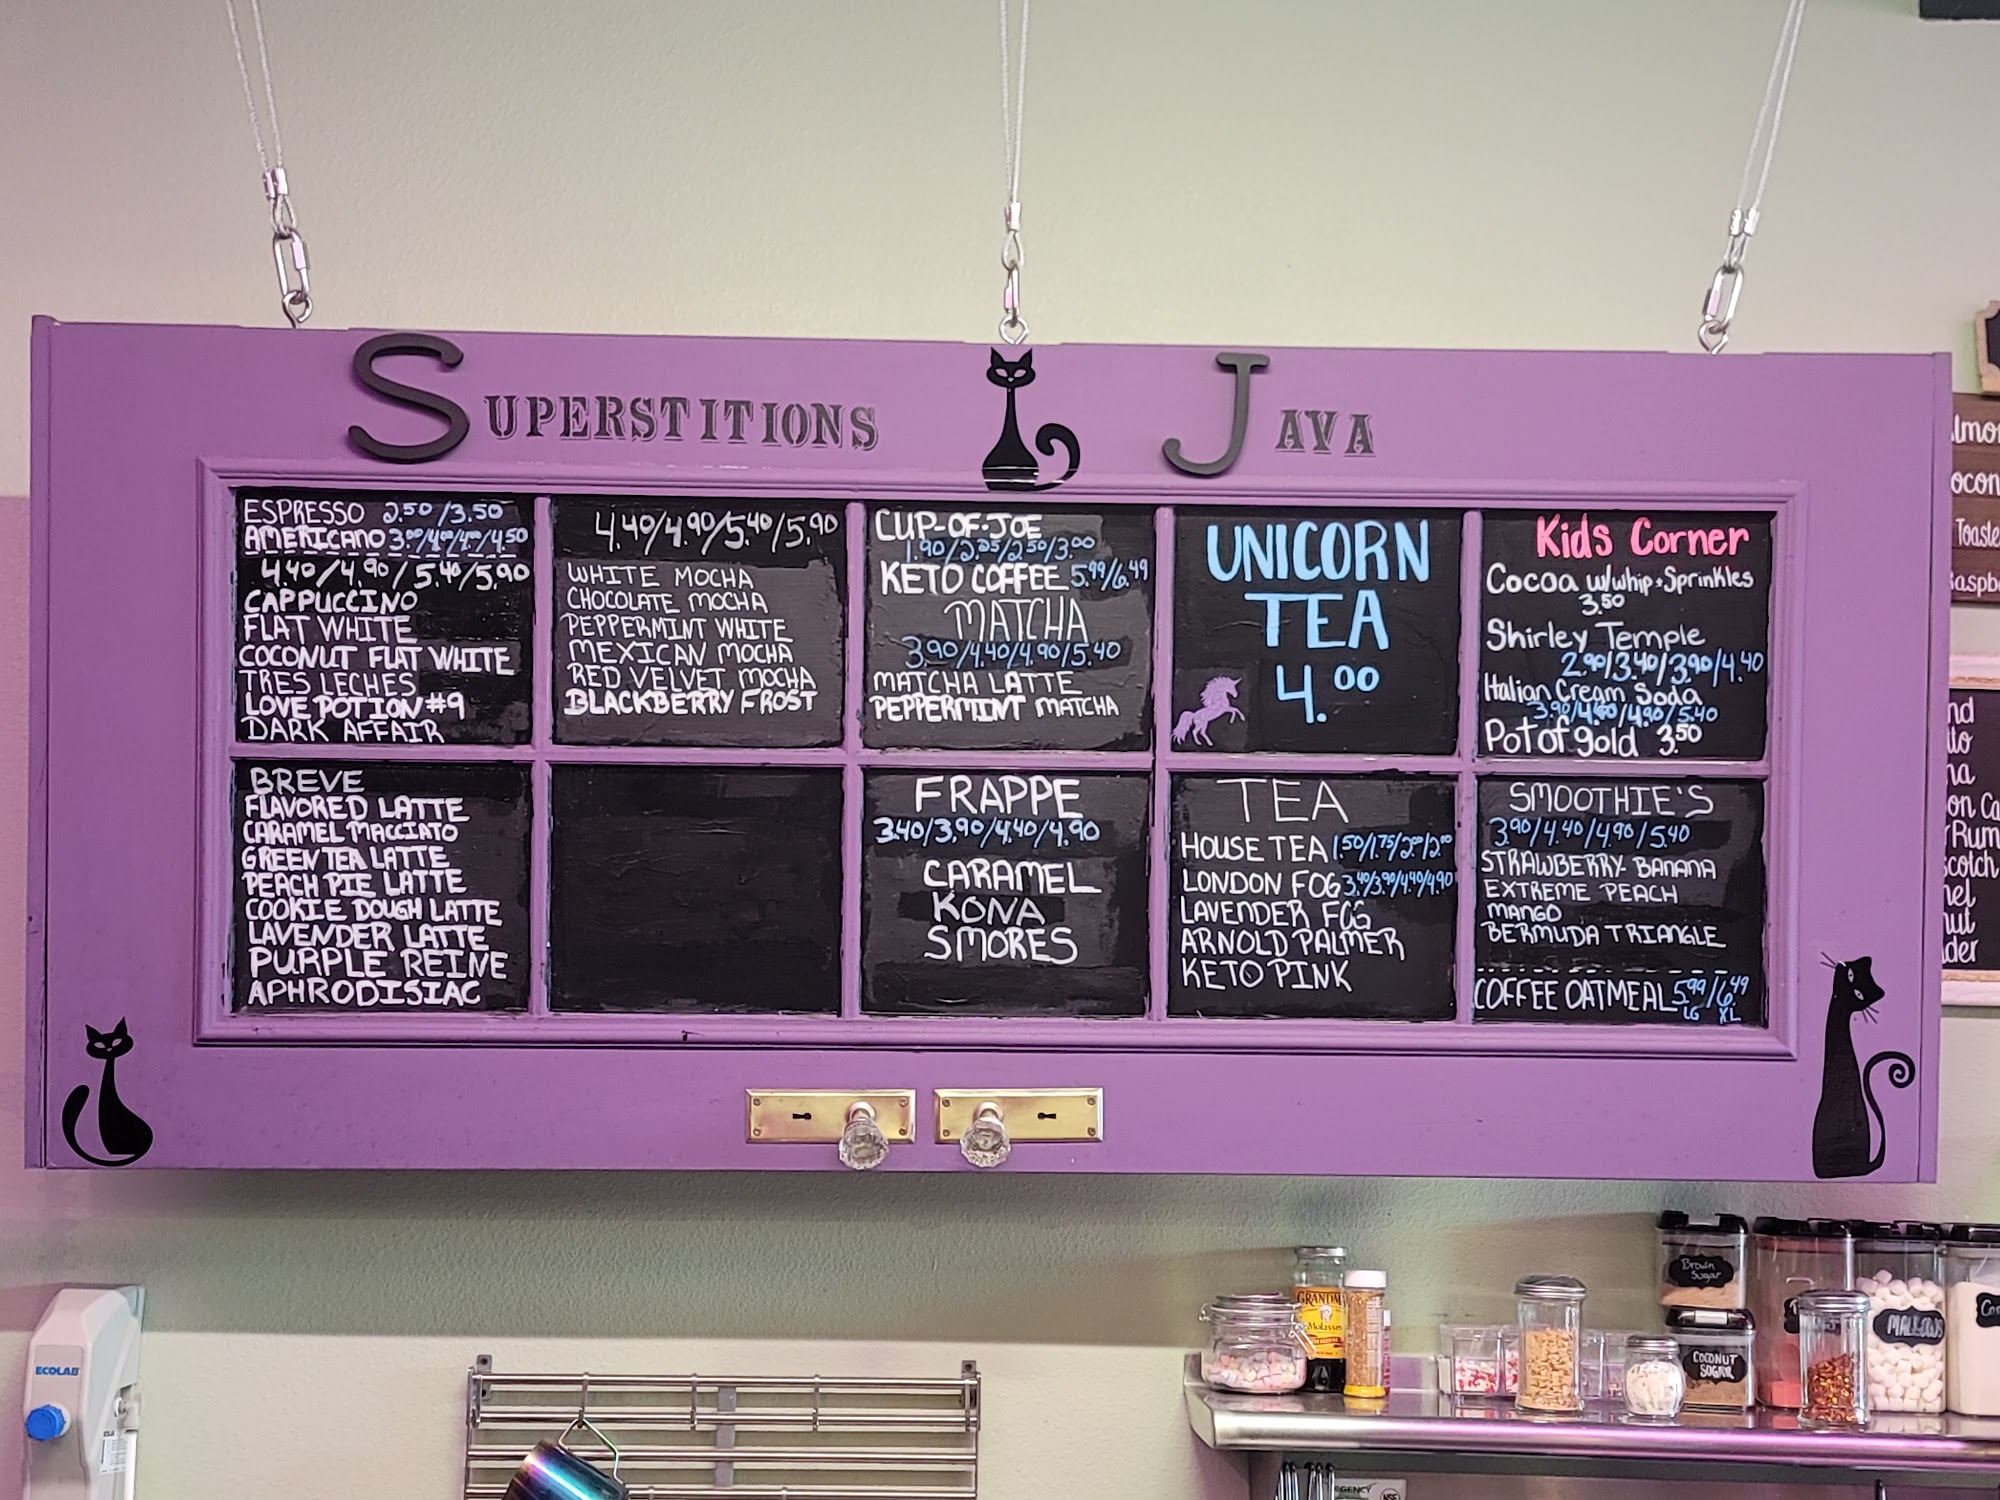 SUPERSTITIONS JAVA
ESPRESSO 2.50/3.50
AMERICANO 3.00/4.00/4.00/4.50
4.40/4.90/5.40/5.90
CAPPUCCINO
FLAT WHITE
COCONUT FLAT WHITE
TRES LECHES
LOVE POTION #9
DARK AFFAIR
BREVE
FLAVORED LATTE
CARAMEL MACCIATO
GREEN TEA LATTE
PEACH PIE LATTE
COOKIE DOUGH LATTE
LAVENDER LATTE
PURPLE REINE
APHRODISIAC
4.40/4.90/5.40/5.90
WHITE MOCHA
CHOCOLATE MOCHA
PEPPERMINT WHITE
MEXICAN MOCHA
RED VELVET MOCHA
BLACKBERRY FROST
CUP-OF-JOE
1.90/2.25/2.50/3.00
KETO COFFEE 5.99/6.49
MATCHA
3.90/4.40/4.90/5.40
MATCHA LATTE
PEPPERMINT MATCHA
FRAPPE
3.40/3.90/4.40/4.90
CARAMEL
KONA
SMORES
UNICORN
TEA
4.00
TEA
HOUSE TEA 1.50/1.75/2.00/2.00
LONDON FOG 3.40/3.90/4.40/4.90
LAVENDER FOG
ARNOLD PALMER
KETO PINK
Kids Corner
Cocoa w/whip + Sprinkles
3.50
Shirley Temple
2.90/3.40/3.90/4.40
Italian Cream Soda
3.90/4.40/4.90/5.40
Pot of gold 3.50
SMOOTHIE'S
3.90/4.40/4.90/5.40
STRAWBERRY-BANANA
EXTREME PEACH
MANGO
BERMUDA TRIANGLE
COFFEE OATMEAL 5.99/6.49
LG XL
Brown
Sugar
COCONUT
SUGAR
MALLOWS
GRANDMA
Molasses
ECOLAB